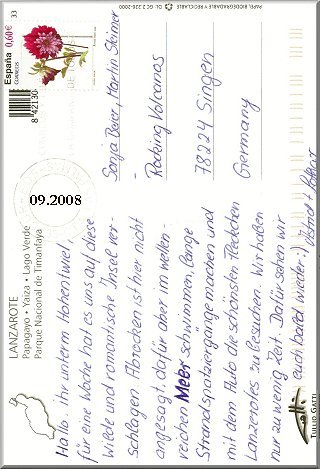 LANZAROTE
Papagayo • Yaiza • Lago Verde
Parque Nacional de Timanfaya
Hallo.. ihr unterm Hohentwiel,
für eine Woche hat es uns auf diese
wilde und romantische Insel ver-
schlagen Abrocken ist hier nicht
angesagt, dafür aber im wellen-
reichen Meer schwimmen, lange
Strandspaziergänge machen und
mit dem Auto die schönsten Fleckchen
Lanzarotes zu besuchen. Wir haben
nur zu wenig Zeit. Dafür sehen wir
euch bald wieder :)
09.2008
España 0,60€
CORREOS
33
8 42130
Sonja Baier, Martin Skimer
Rocking Volcanos
78224 Singen
Germany
PAPEL BIODEGRADABLE Y RECICLABLE
TULLIO GATTI